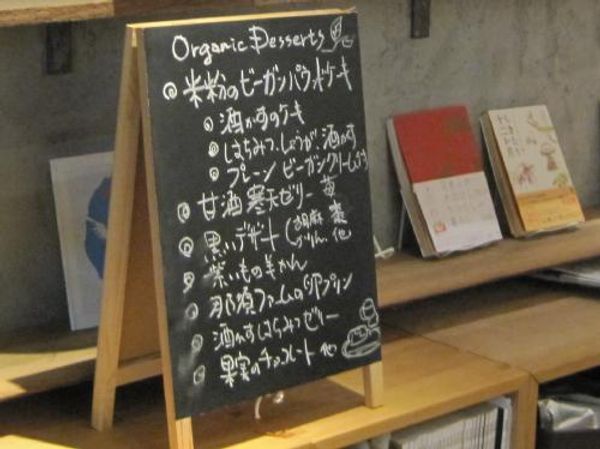 Organic Desserts
米粉のビーガンパウンドケーキ
酒かすのケーキ
はちみつ、しょうが、酒かす
プレーン ビーガンクリーム
甘酒寒天ゼリー 苺
黒いデザート (胡麻 棗 他
紫いもの羊かん
那須ファームの卵プリン
酒かすはちみつゼリー
果実のチョコレート 他